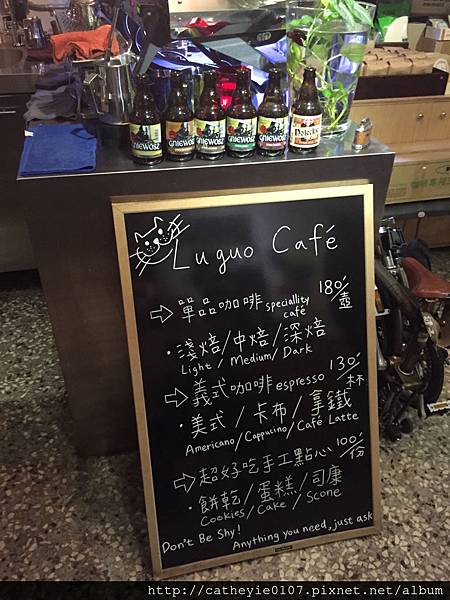 GNIEWOSZ
GNIEWOSZ
GNIEWOSZ
GNIEWOSZ
GNIEWOSZ
Luguo Café
單品咖啡 speciallity café 180/壺
淺焙/中焙/深焙
Light / Medium / Dark
義式咖啡 espresso 130/杯
美式 / 卡布 / 拿鐵
Americano / Cappucino / Café Latte
超好吃手工點心 100/份
餅乾/蛋糕/司康
Cookies / Cake / Scone
Don't Be Shy!
Anything you need, just ask
http://catheyie0107.pixnet.net/album